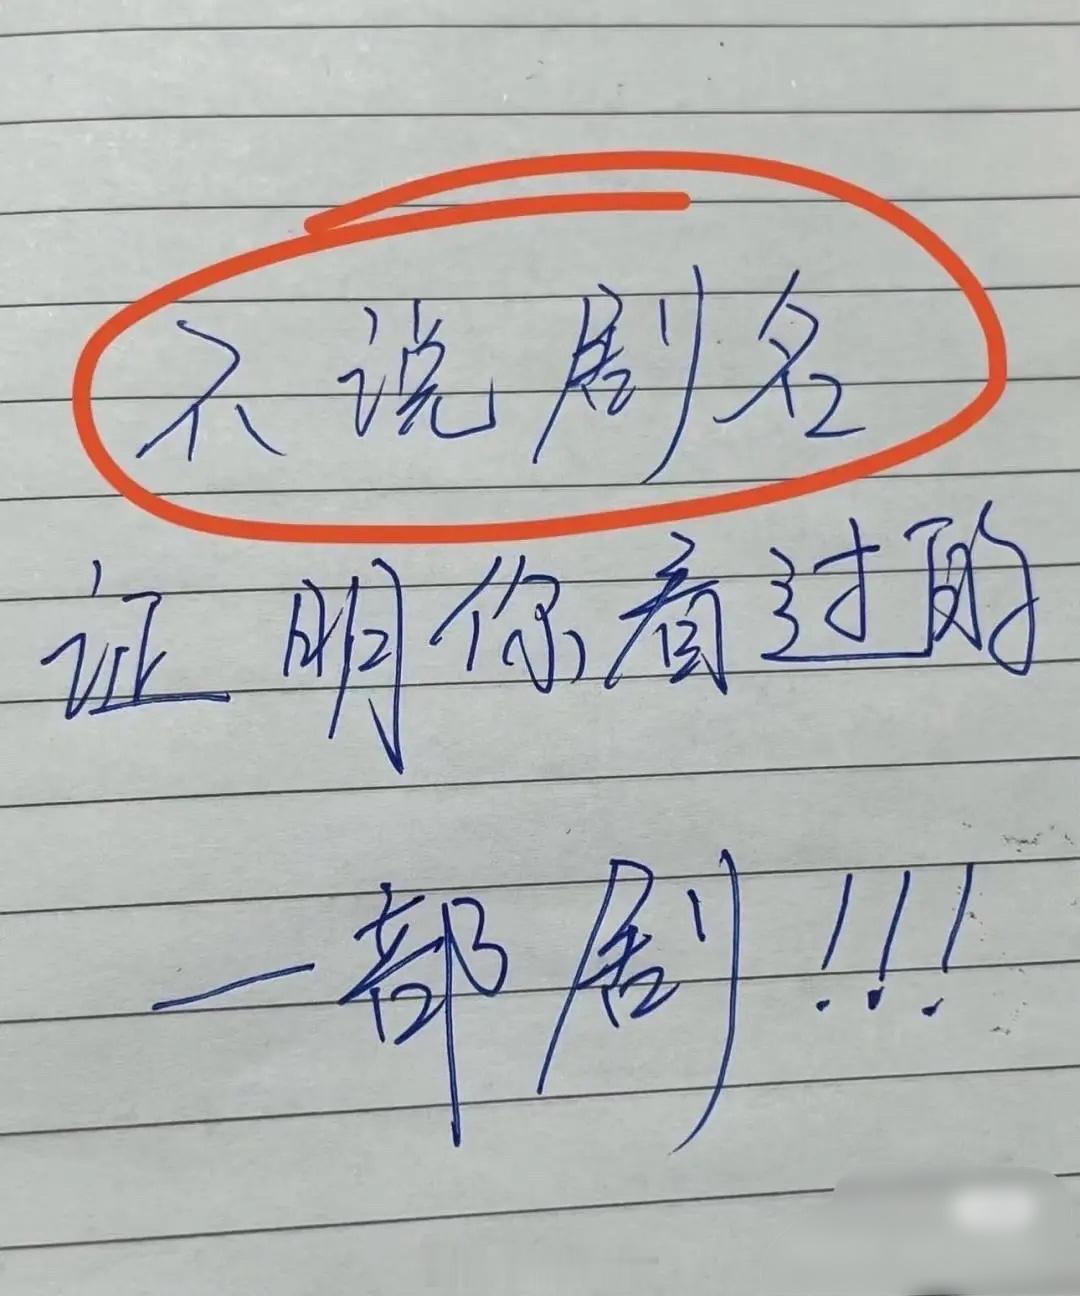 不说剧名
证明你看过的
一部剧!!!